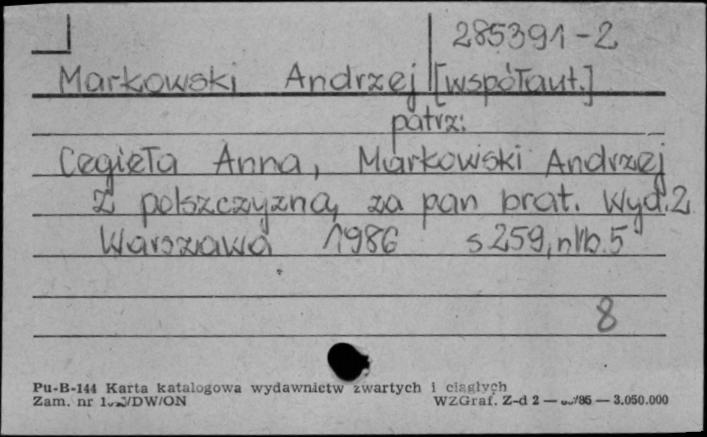 285391-2
Markowski Andrzej [współaut.]
patrz:
Cegieła Anna, Markowski Andrzej
Z polszczyzną za pan brat. Wyd.2
Warszawa 1986 s 259, nlb.5
8
Pu-B-144 Karta katalogowa wydawnictw zwartych i ciągłych
Zam. nr /DW/ON WZGraf. Z-d 2 — /85 — 3.050.000